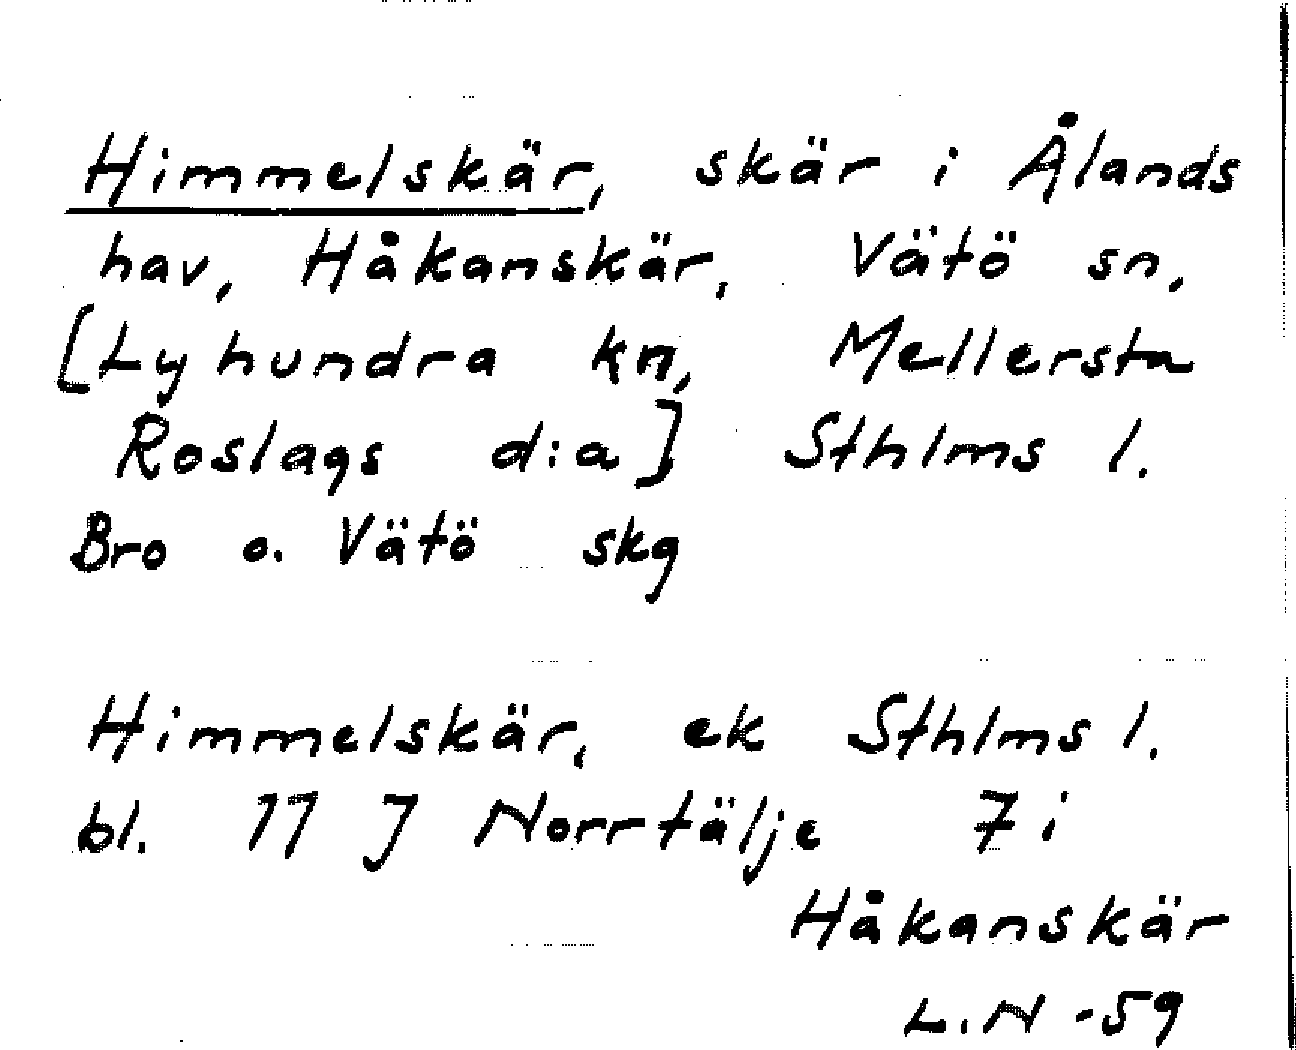 Himmelskär, skär i Ålands
hav, Håkanskär, Vätö sn,
[Lyhundra kn, Mellersta
Roslags d:a] Sthlms l.
Bro o. Vätö skg
Himmelskär, ek Sthlms l.
bl. 77 J Norrtälje 7 i
Håkanskär
L.N -59